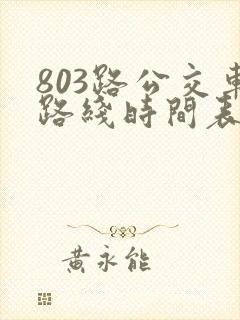 803路公交車
路綫時間表
黃永能